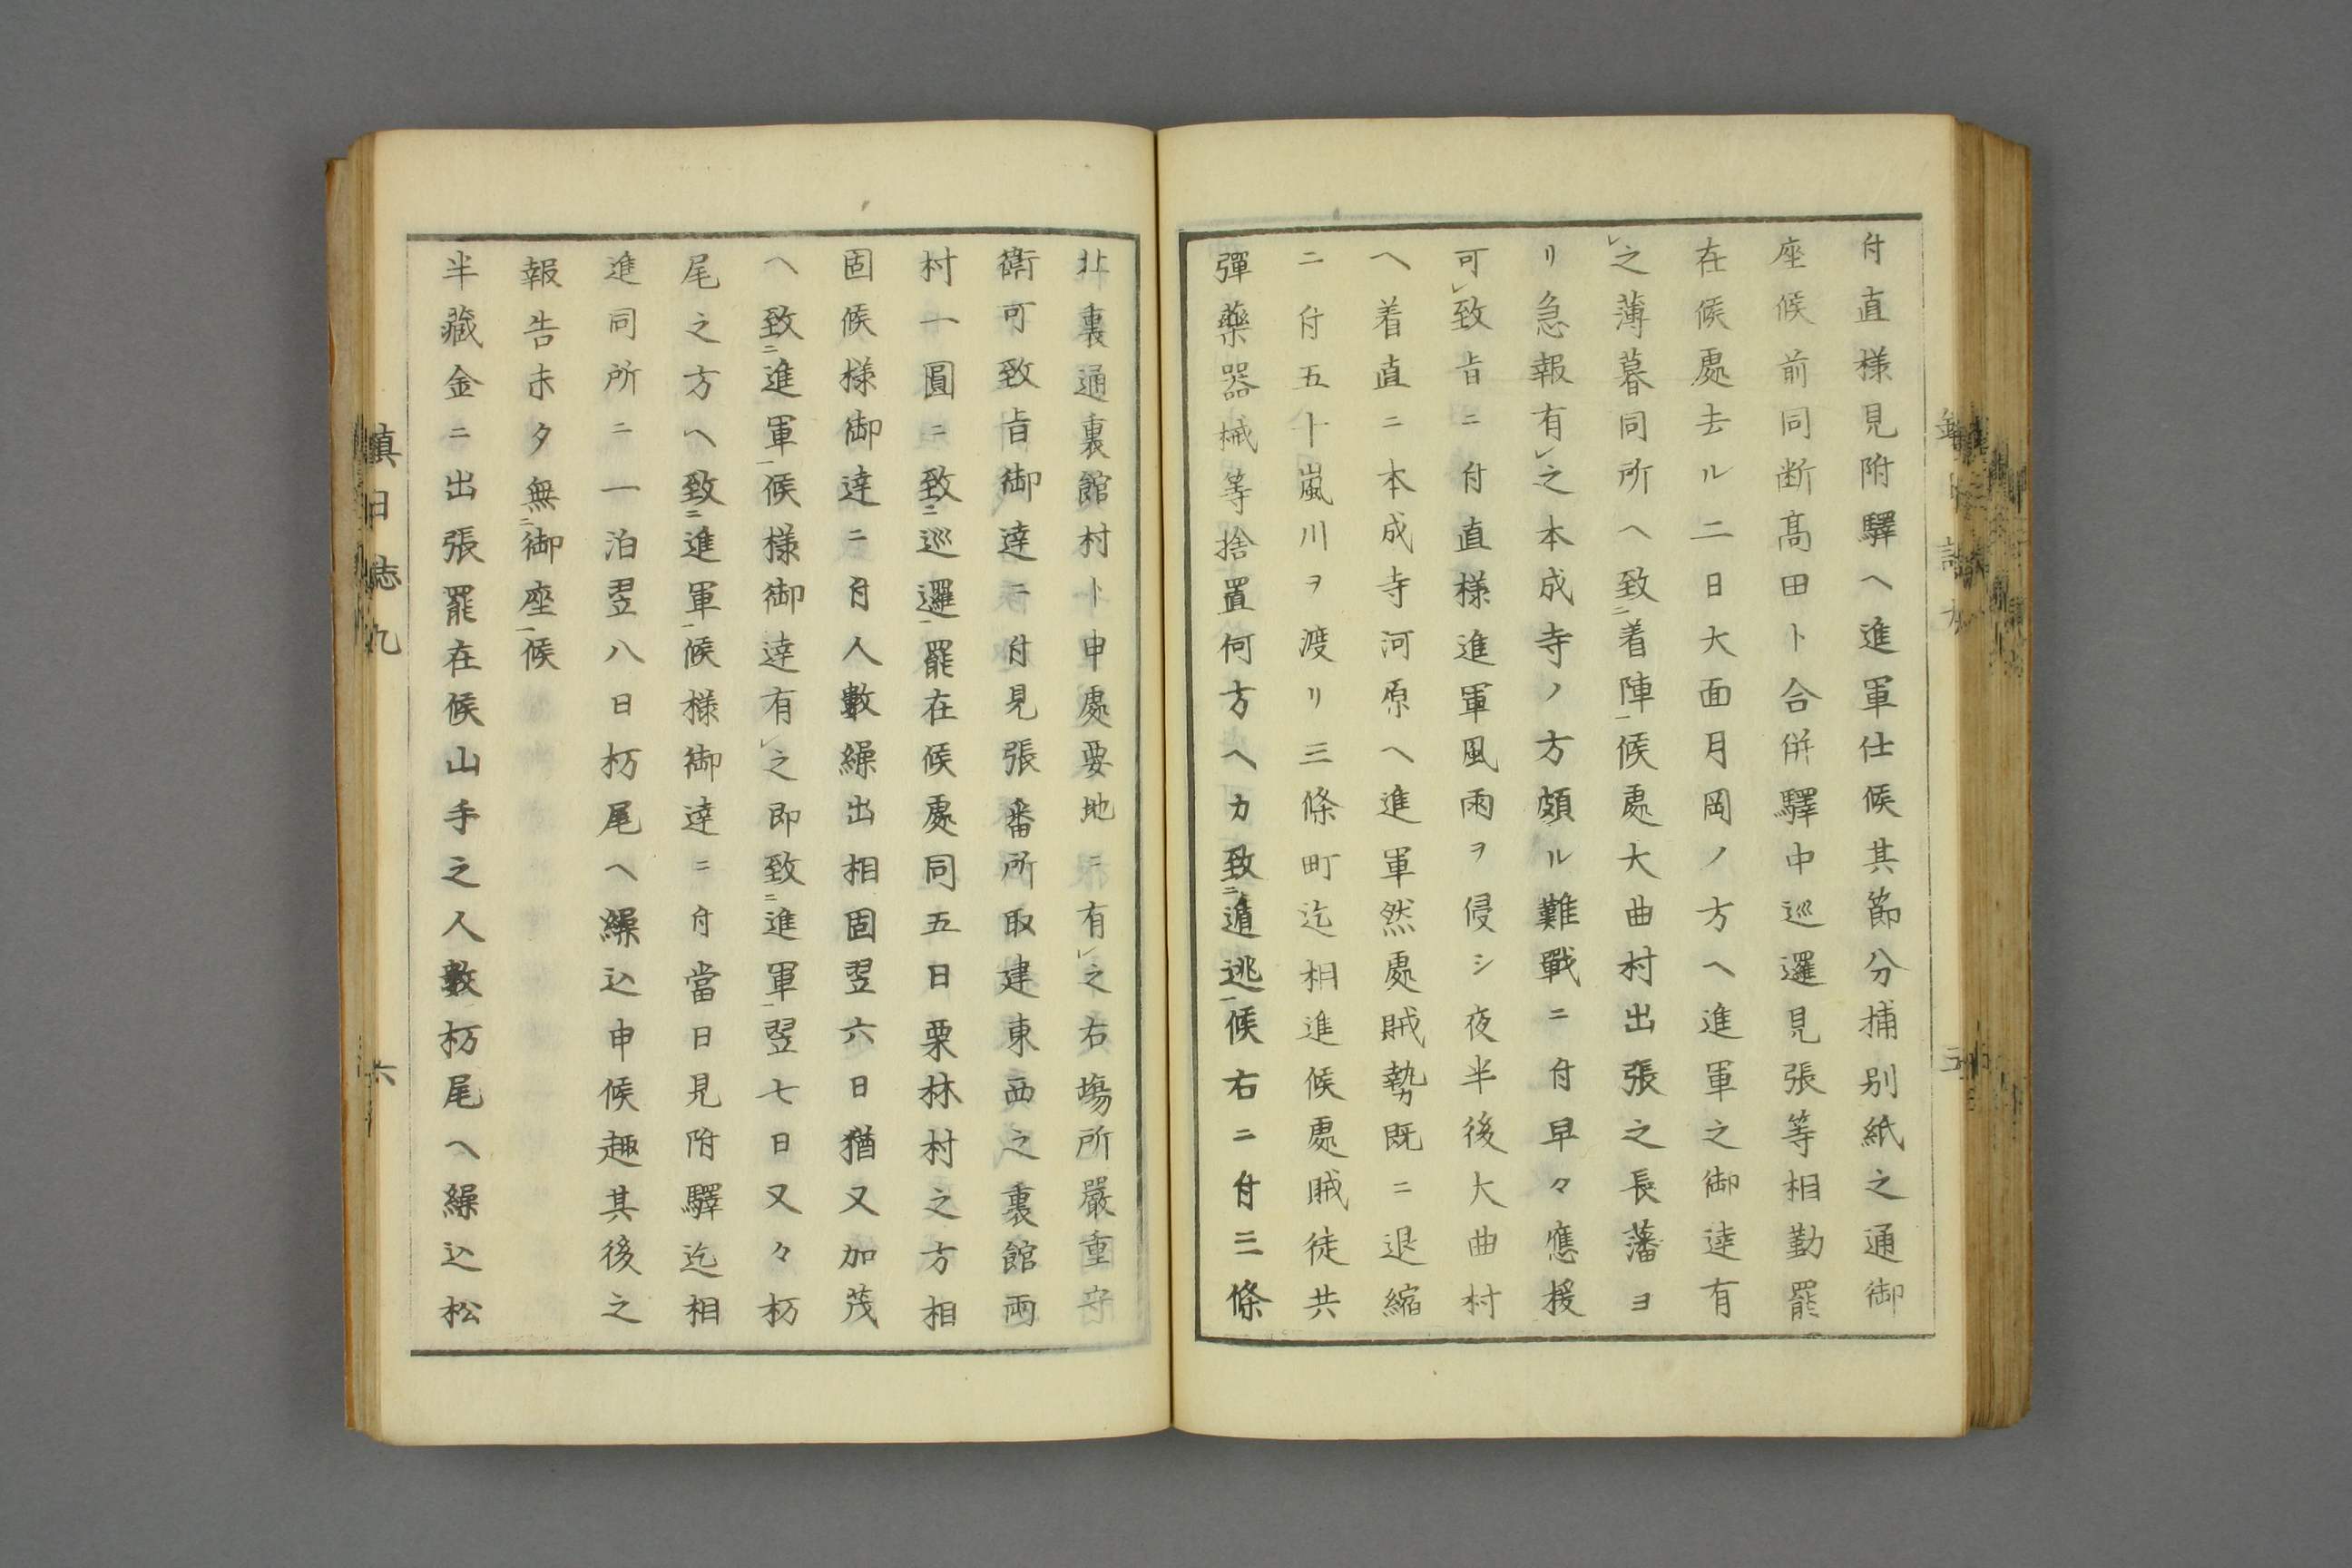 付直様見附驛ヘ進軍仕候其節分捕別紙之通御
座候前同断髙田ト合併驛中巡邏見張等相勤罷
在候處去ル二日大面月岡ノ方ヘ進軍之御達有
レ之薄暮同所ヘ致ニ着陣一候處大曲村出張之長藩ヨ
リ急報有レ之本成寺ノ方頗ル難戰ニ付早々應援
可レ致旨ニ付直様進軍風雨ヲ侵シ夜半後大曲村
ヘ着直ニ本成寺河原ヘ進軍然處賊勢既ニ退縮
ニ付五十嵐川ヲ渡リ三條町迄相進候處賊徒共
彈藥器械等捨置何方ヘカ致ニ遁逃一候右ニ付三條
北裏通裏館村ト申處要地ニ有レ之右場所嚴重守
衛可致旨御達ニ付見張番所取建東西之裏館両
村一圓ニ致ニ巡邏一罷在候處同五日栗林村之方相
固候様御達ニ付人數繰出相固翌六日猶又加茂
ヘ致ニ進軍一候様御達有レ之即致ニ進軍一翌七日又々栃
尾之方ヘ致ニ進軍一候様御達ニ付當日見附驛迄相
進同所ニ一泊翌八日栃尾ヘ繰込申候趣其後之
報告未タ無ニ御座一候
半藏金ニ出張罷在候山手之人數栃尾ヘ繰込松
鎮日誌九
六